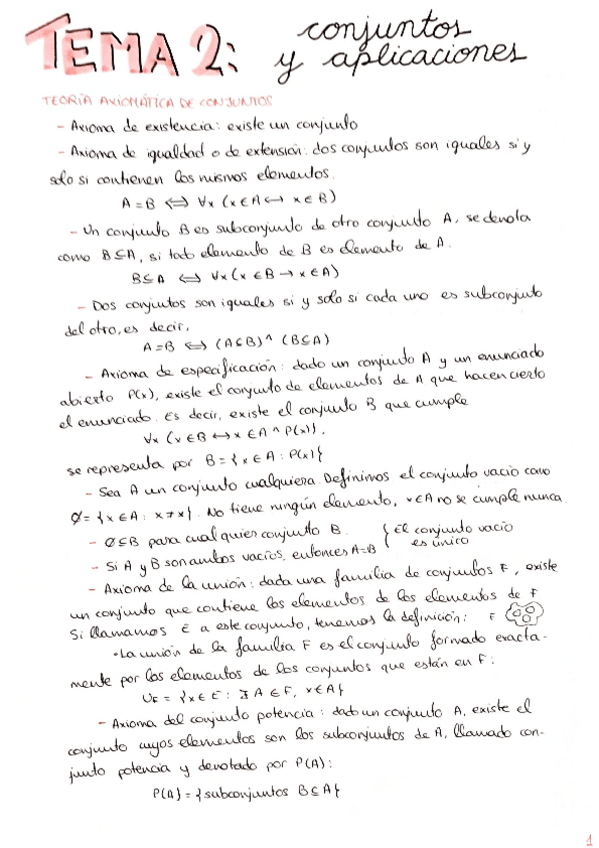 TEMA 2: conjuntos
y aplicaciones
TEORÍA AXIOMÁTICA DE CONJUNTOS
- Axioma de existencia: existe un conjunto
- Axioma de igualdad o de extensión: dos conjuntos son iguales si y
solo si contienen los mismos elementos.
A = B ⟺ ∀x (x ∈ A ↔ x ∈ B)
- Un conjunto B es subconjunto de otro conjunto A, se denota
como B ⊆ A, si todo elemento de B es elemento de A.
B ⊆ A ⟺ ∀x (x ∈ B → x ∈ A)
- Dos conjuntos son iguales si y solo si cada uno es subconjunto
del otro, es decir,
A = B ⟺ (A ⊆ B) ^ (B ⊆ A)
- Axioma de especificación: dado un conjunto A y un enunciado
abierto P(x), existe el conjunto de elementos de A que hacen cierto
el enunciado. Es decir, existe el conjunto B que cumple
∀x (x ∈ B ↔ x ∈ A ^ P(x)).
se representa por B = {x ∈ A : P(x)}
- Sea A un conjunto cualquiera. Definimos el conjunto vacío como
∅ = {x ∈ A : x ≠ x}. No tiene ningún elemento, x ∈ A no se cumple nunca
- ∅ ⊆ B para cualquier conjunto B. { El conjunto vacío
- Si A y B son ambos vacíos, entonces A = B es único
- Axioma de la unión: dada una familia de conjuntos F, existe
un conjunto que contiene los elementos de los elementos de F
Si llamamos E a este conjunto, tenemos la definición: F
• La unión de la familia F es el conjunto formado exacta-
mente por los elementos de los conjuntos que están en F:
U_F = {x ∈ E : ∃ A ∈ F, x ∈ A}
- Axioma del conjunto potencia: dado un conjunto A, existe el
conjunto cuyos elementos son los subconjuntos de A, llamado con-
junto potencia y denotado por P(A):
P(A) = {subconjuntos B ⊆ A}
1